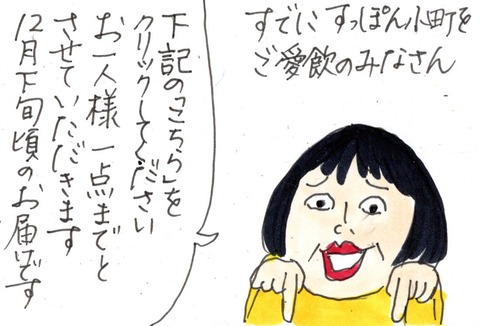 すでにすっぽん小町を
ご愛飲のみなさん
下記の「こちら」を
クリックしてください
お一人様一点までと
させていただきます
12月下旬頃のお届けです